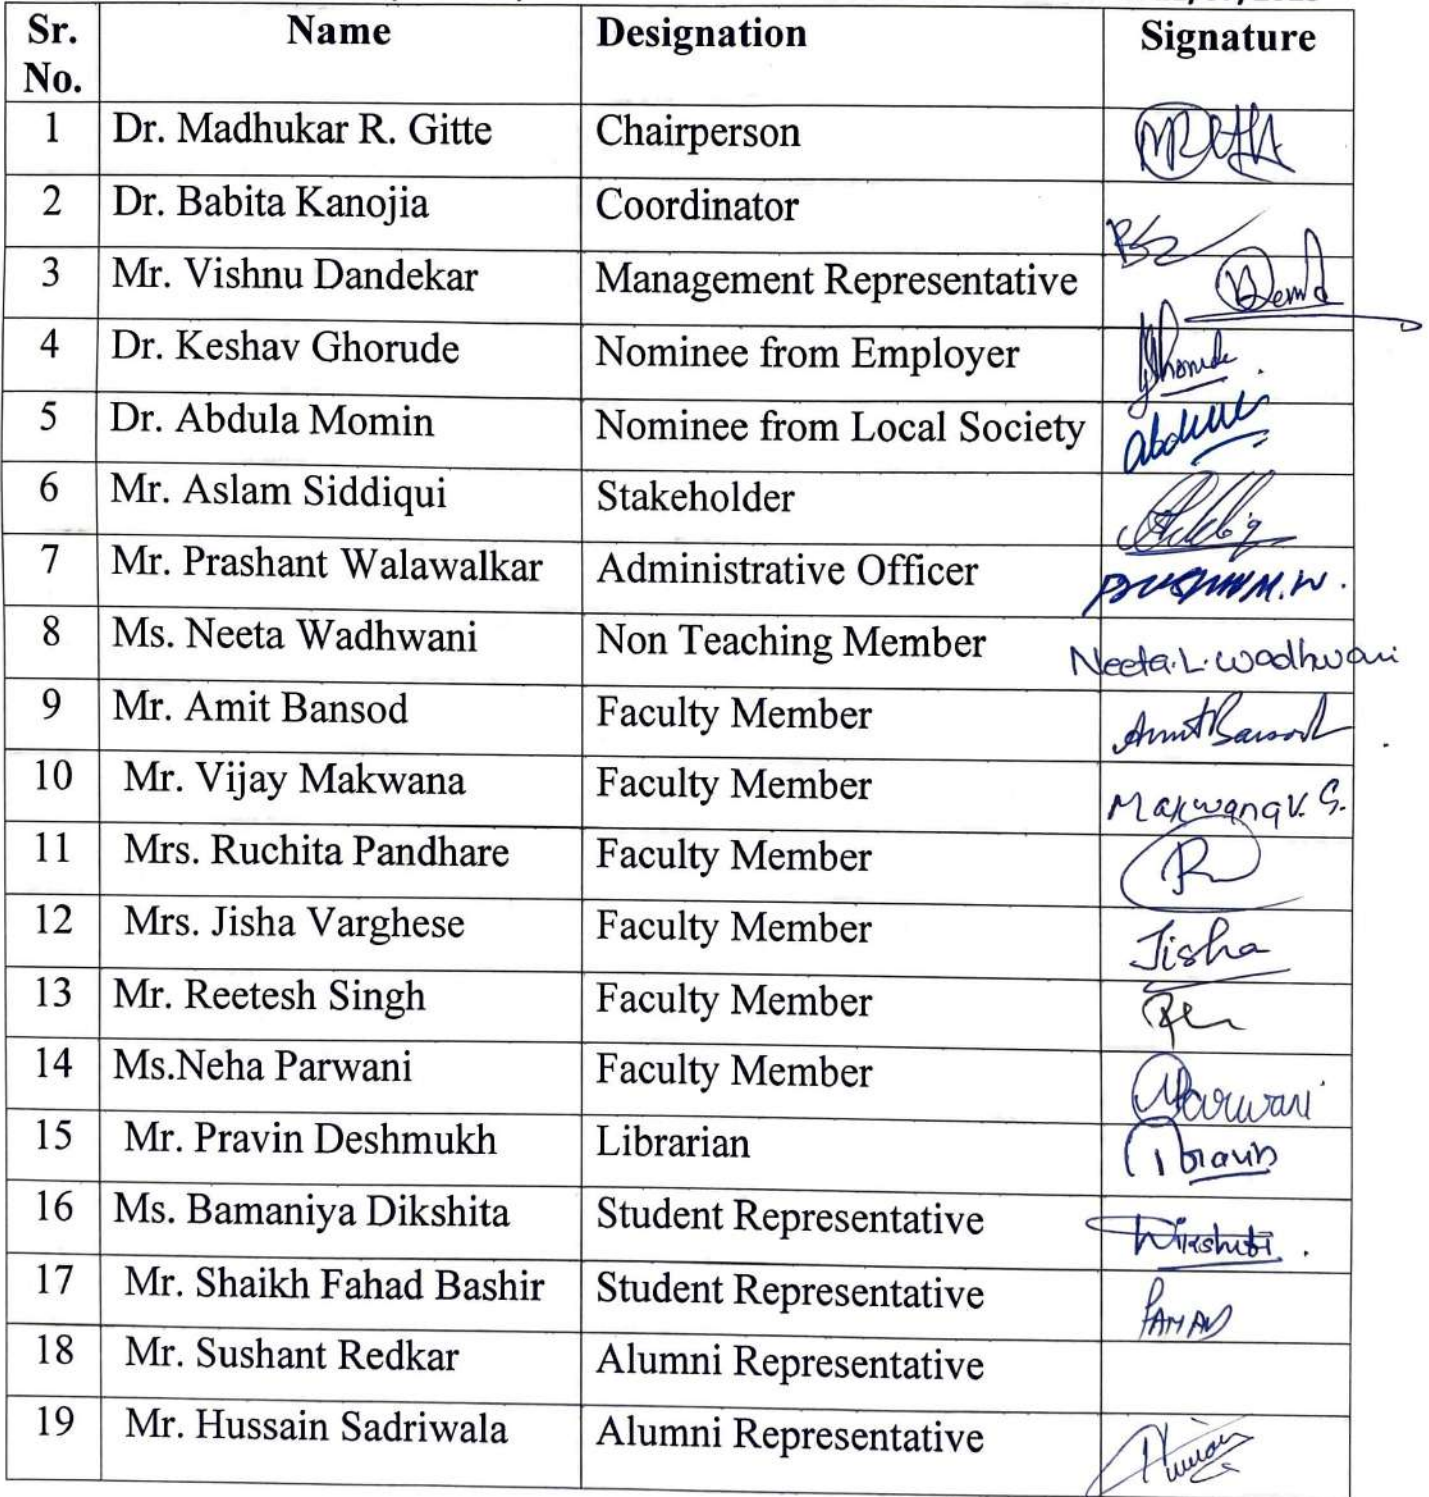 Sr. No. Name Designation Signature
1 Dr. Madhukar R. Gitte Chairperson
2 Dr. Babita Kanojia Coordinator
3 Mr. Vishnu Dandekar Management Representative
4 Dr. Keshav Ghorude Nominee from Employer
5 Dr. Abdula Momin Nominee from Local Society
6 Mr. Aslam Siddiqui Stakeholder
7 Mr. Prashant Walawalkar Administrative Officer
8 Ms. Neeta Wadhwani Non Teaching Member Neeta.L.wadhwani
9 Mr. Amit Bansod Faculty Member AmitBansod
10 Mr. Vijay Makwana Faculty Member Makwana V. S.
11 Mrs. Ruchita Pandhare Faculty Member R
12 Mrs. Jisha Varghese Faculty Member Jisha
13 Mr. Reetesh Singh Faculty Member
14 Ms.Neha Parwani Faculty Member Parwani
15 Mr. Pravin Deshmukh Librarian
16 Ms. Bamaniya Dikshita Student Representative
17 Mr. Shaikh Fahad Bashir Student Representative FAHAD
18 Mr. Sushant Redkar Alumni Representative
19 Mr. Hussain Sadriwala Alumni Representative